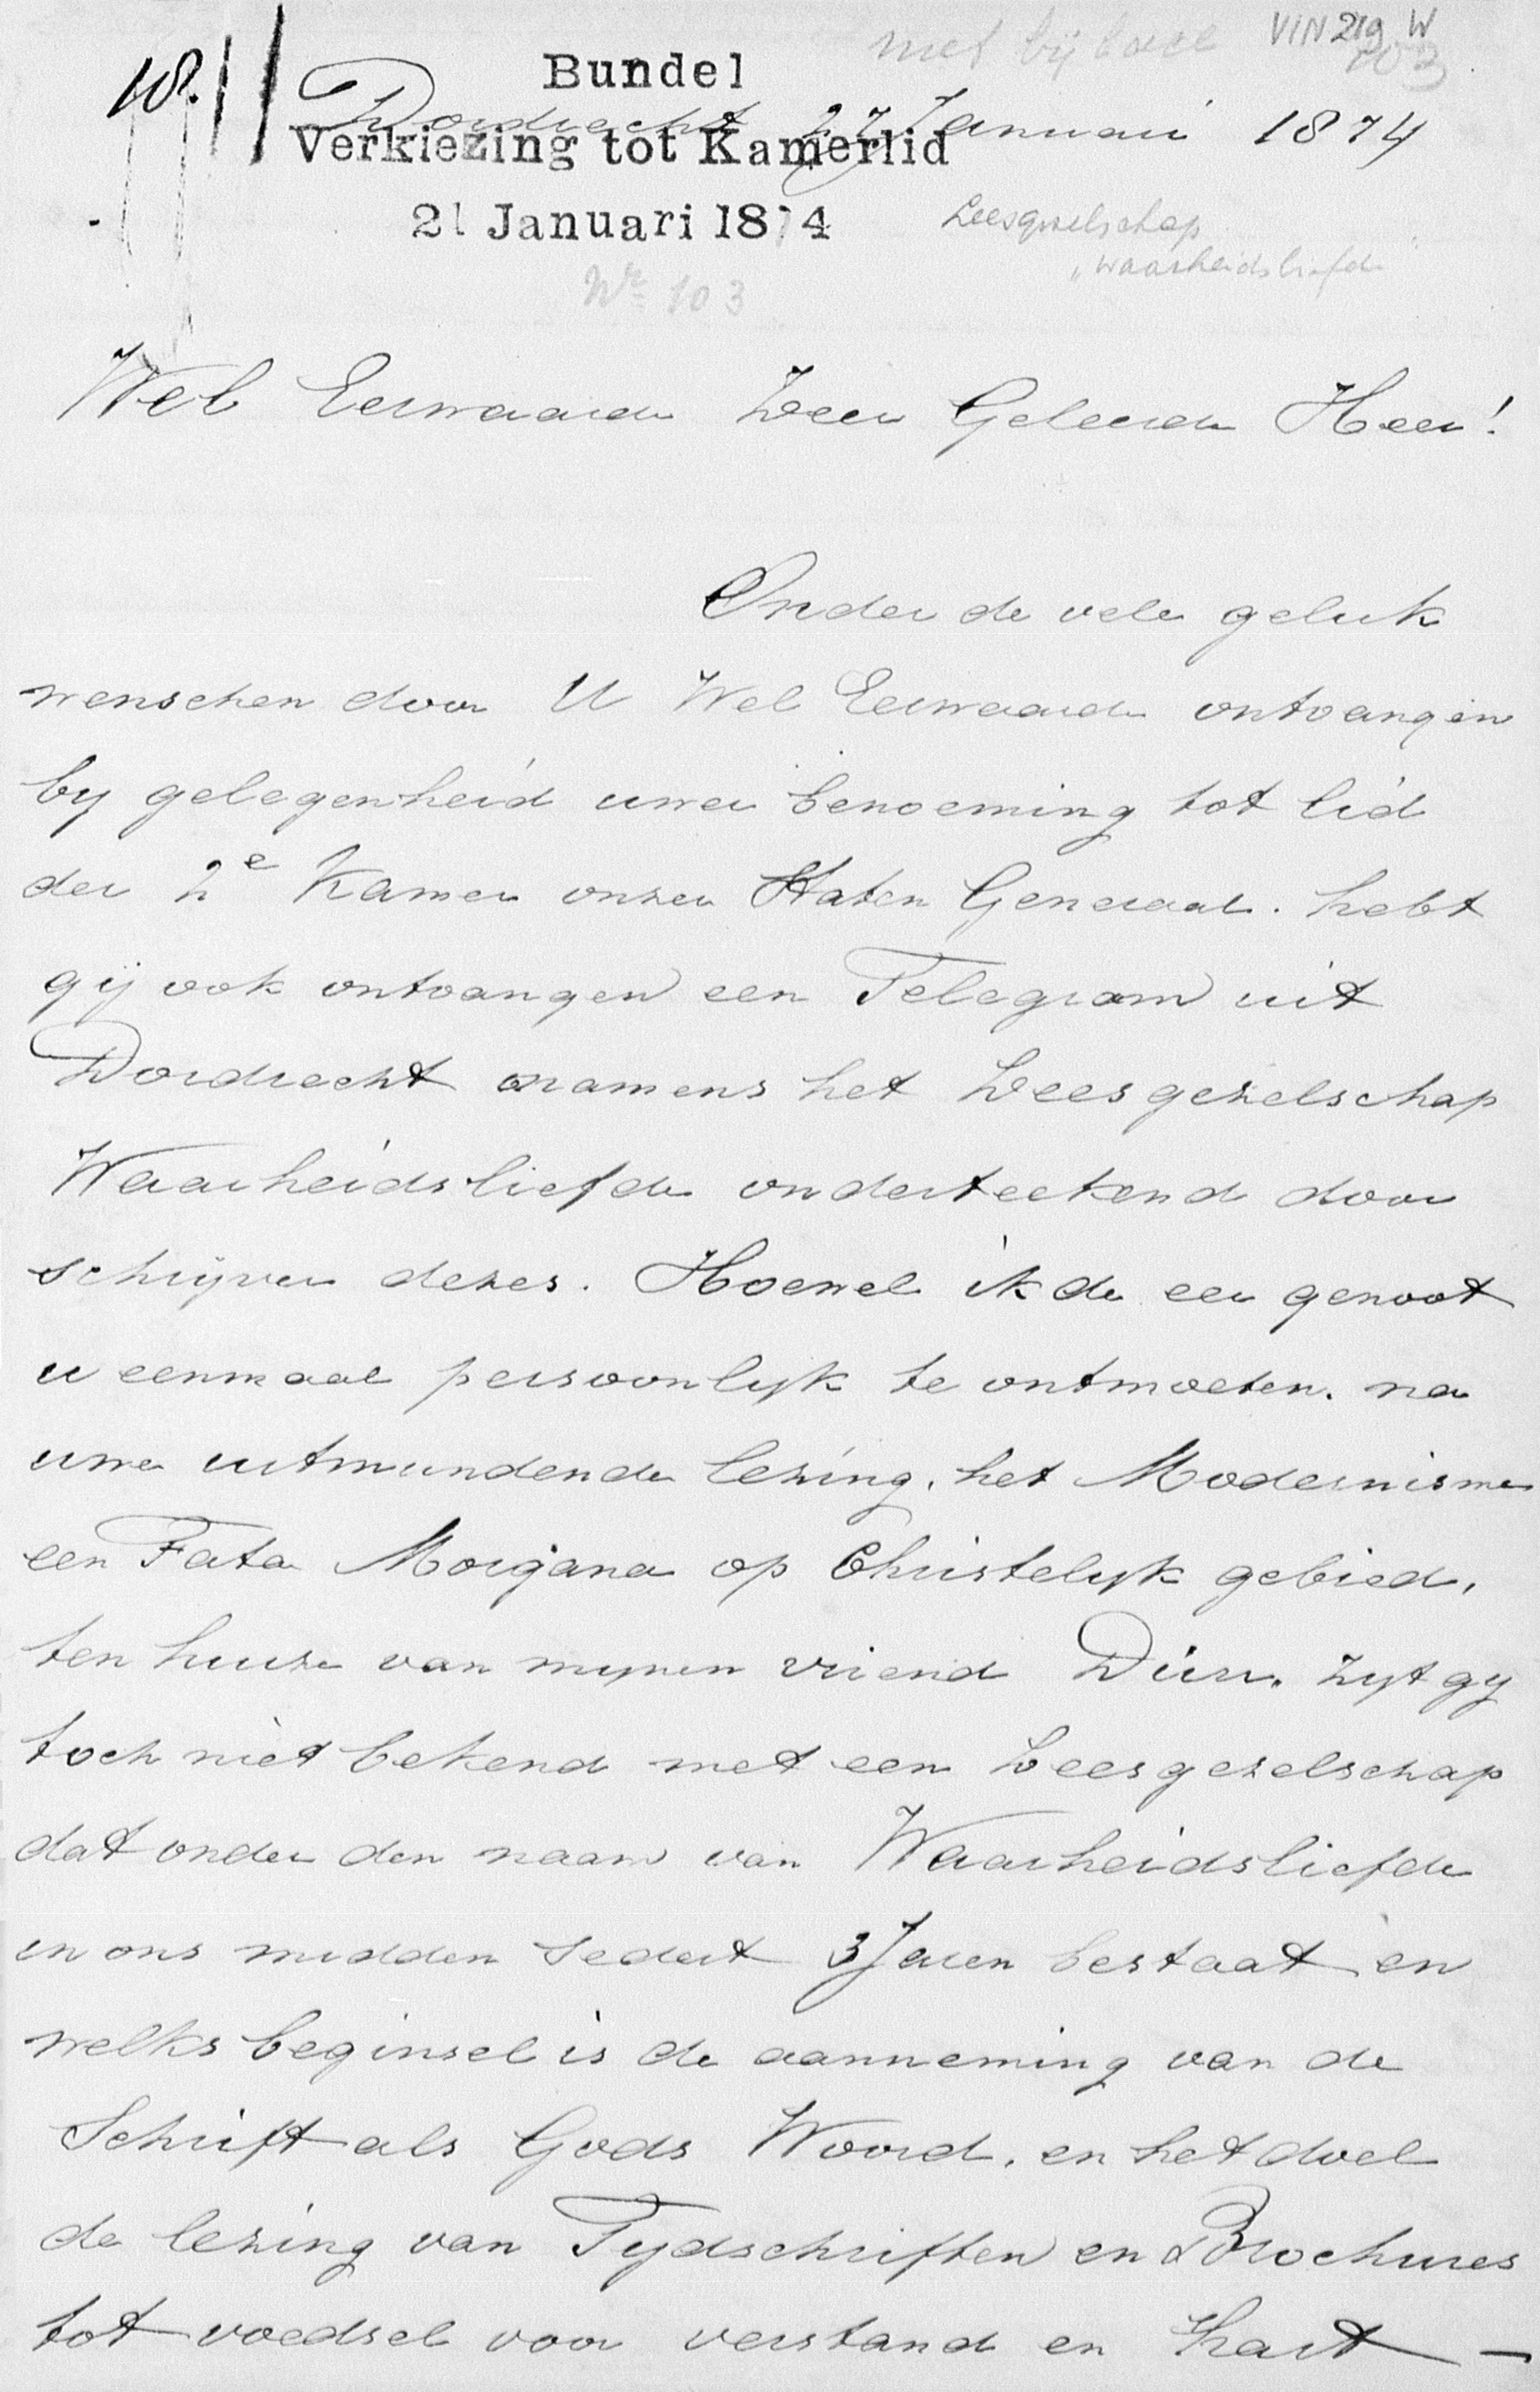 met bijlage VIN 219 W
103
10.
Bundel
Dordrecht 27 Januari 1874
Verkiezing tot Kamerlid
21 Januari 1874
Leesgezelschap
"Waarheidsliefde"
No 103
Wel Eerwaarde Zeer Geleerde Heer!
Onder de vele geluk
wenschen door U Wel Eerwaarde ontvangen
by gelegenheid uwer benoeming tot lid
der 2e Kamer onzer Staten Generaal. hebt
gij ook ontvangen een Telegram uit
Dordrecht namens het Leesgezelschap
Waarheidsliefde onderteekend door
schrijver dezes. Hoewel ik de eer genoot
u eenmaal persoonlyk te ontmoeten. na
uwe uitmundende lezing. het Modernisme
een Fata Morgana op Christelyk gebied,
ten huize van mynen vriend Dürr. zyt gy
toch niet bekend met een Leesgezelschap
dat onder den naam van Waarheidsliefde
in ons midden sedert 3 Jaren bestaat en
welks beginsel is de aanneming van de
Schrift als Gods Woord. en het doel
de lezing van Tydschriften en Brochures
tot voedsel voor verstand en hart —